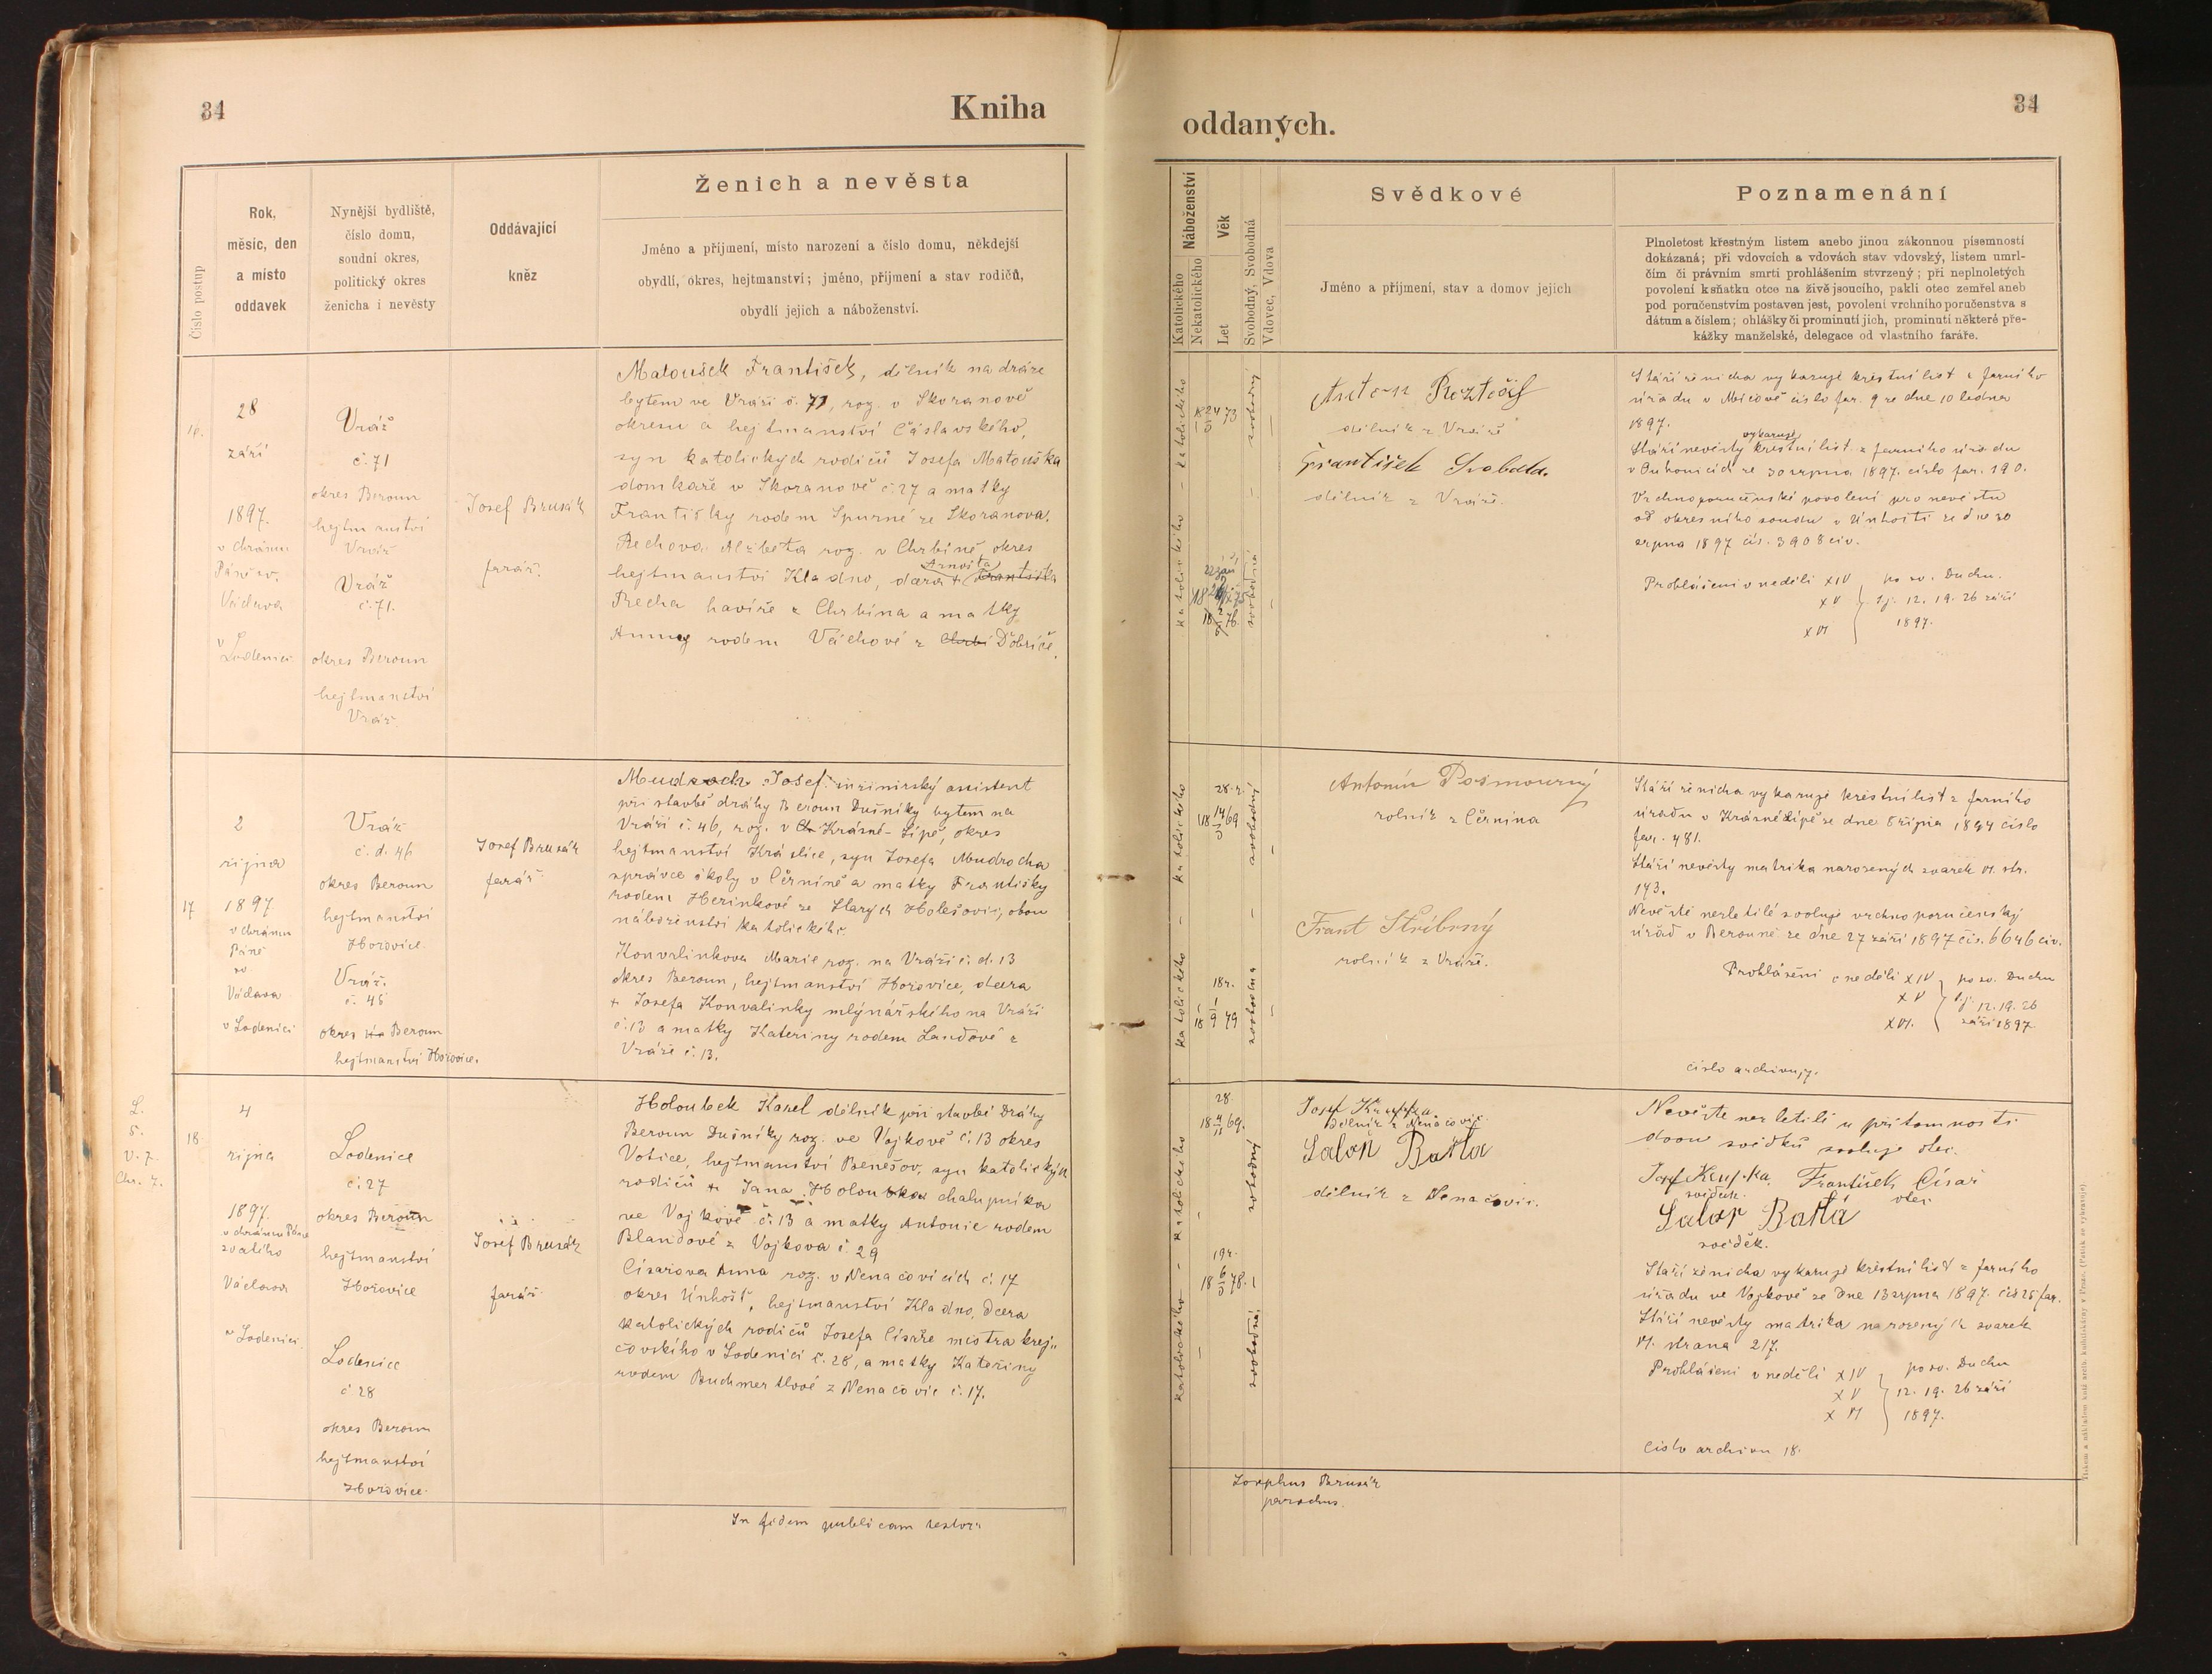 34
Kniha
Číslo postup
Rok,
měsíc, den
a místo
oddavek
Nynější bydliště,
číslo domu,
soudní okres,
politický okres
ženicha i nevěsty
Oddávající
kněz
Ženich a nevěsta
Jméno a příjmení, místo narození a číslo domu, někdejší
obydlí, okres, hejtmanství; jméno, příjmení a stav rodičů,
obydlí jejich a náboženství.
28
září
1897.
v chrámu
Páně sv.
Václava
v
Loděnici
Vráž
č. 71
okres Beroun
hejtmanství
Vráž
Vráž
č. 71.
okres Beroun
hejtmanství
Vráž.
Josef Brusák
farář.
Matoušek František, dělník na dráze
bytem ve Vráži č. 71, roz. v Skoranově
okresu a hejtmanství Čáslavského,
syn katolických rodičů Josefa Matouška
domkaře v Skoranově č. 27 a matky
Františky rodem Spurné ze Skoranova.
Pechova Alžběta roz. v Chrbíně, okres
Arnošta
hejtmanství Kladno, dcera + Františka
Pecha havíře z Chrbína a matky
Anny rodem Váchové z Chrbí Dobříč.
17
2
října
1897
v chrámu
Páně
sv
Václava
v Loděnici
Vráž
č. d. 46
okres Beroun
hejtmanství
Hořovice.
Vráž.
č. 45
okres Beroun
hejtmanství Hořovice.
Josef Brusák
farář
Mudroch Josef inžinirský assistent
při stavbě dráhy Beroun Dušníky bytem na
Vráži č. 46, roz. v Krásné-Lípě, okres
hejtmanství Kráslice, syn Josefa Mudrocha
správce školy v Černíně a matky Františky
rodem Herinkové ze Starých Holešovic, obou
náboženství katolického
Konvalinkova Marie roz. na Vráži č. d. 13
okres Beroun, hejtmanství Hořovice, dcera
+ Josefa Konvalinky mlýnářského na Vráži
č. 13 a matky Kateřiny rodem Landové z
Vráže č. 13.
L.
5.
V. 7.
Chr. 7.
18.
4
října
1897.
v chrámu Páně
svatého
Václava
v Loděnici
Loděnice
č. 27
okres Beroun
hejtmanství
Hořovice
Loděnice
č 28
okres Beroun
hejtmanství
Hořovice.
Josef Brusák
farář
Holoubek Karel dělník při stavbě dráhy
Beroun Dušníky roz. ve Vojkově č. 13 okres
Votice, hejtmanství Benešov, syn katolických
rodičů + Jana Holoubka chalupníka
ve Vojkově č. 13 a matky Antonie rodem
Blandové z Vojkova č 29
Císařova Anna roz. v Nenačovicích č. 17
okres Únhošť, hejtmanství Kladno, dcera
katolických rodičů Josefa Císaře mistra krej„
čovského v Loděnici č. 28, a matky Kateřiny
rodem Buchmertlové z Nenačovic č. 17.
In fidem publicam testor:
34
oddaných.
Náboženství
Katolického
Nekatolického
Věk
Let
Svobodný, Svobodná
Vdovec, Vdova
Svědkové
Jméno a příjmení, stav a domov jejich
Poznamenání
Plnoletost křestným listem anebo jinou zákonnou písemností
dokázaná; při vdovcích a vdovách stav vdovský, listem umrl-
čím či právním smrti prohlášením stvrzený; při neplnoletých
povolení k sňatku otce na živě jsoucího, pakli otec zemřel aneb
pod poručenstvím postaven jest, povolení vrchního poručenstva s
dátum a číslem; ohlášky či prominutí jich, prominutí některé pře-
kážky manželské, delegace od vlastního faráře.
katolického
svobodný
dělník z Vráže
František Svoboda.
dělník z Vráže.
katolického
svobodná
Stáří ženicha vykazuje křestní list z farního
úřadu v Mičově číslo far. 9 ze dne 10 ledna
1897.
vykazuje
Stáří nevěsty křestní list z farního úřadu
30 srpna 1897. číslo far. 190.
Vrchnoporučenské povolení pro nevěstu
od okresního soudu v Únhošti ze dne 20
srpna 1897 čís. 3908 civ.
Prohlášeni v neděli XIV
XV
XVI
po sv. Duchu.
tj. 12. 19. 26 září
1897.
katolického
28 r.
18 14/3 69
svobodný
Antonín Posmourný
rolník z Černína
katolického
18 r.
18 1/9 79
svobodna
Frant Stříbrný
rolník z Vráže.
Stáří ženicha vykazuje křestní list z farního
úřadu v Krásné Lípě ze dne 8 října 1894 číslo
far. 481.
Stáří nevěsty matrika narozených svazek VI. str.
143.
Nevěstě nezletilé svoluje vrchnoporučenský
úřad v Berouně ze dne 27 září 1897 čís. 6646 civ.
Prohlášeni v neděli XIV
XV
XVI.
po sv. Duchu
tj. 12. 19. 26
září 1897
číslo archivu 17.
katolického
28.
18 4/11 69.
svobodný
Josef Krupka
dělník z Nenačovic.
Barta
dělník z Nenačovic.
katolického
19 r.
18 6/3 78.
svobodná
Nevěstě nezletilé u přítomnosti
dvou svědků svoluje otec.
Josef Krupka. František Císař
svědek. otec
Barta
svědek.
Stáří ženicha vykazuje křestní list z farního
úřadu ve Vojkově ze dne 13 srpna 1897. čís 25 far.
Stáří nevěsty matrika narozených svazek
VI. strana 217.
Prohlášeni v neděli XIV
XV
XVI
po sv. Duchu
12. 19. 26 září
1897.
číslo archivu 18.
Josephus Brusák
parochus.